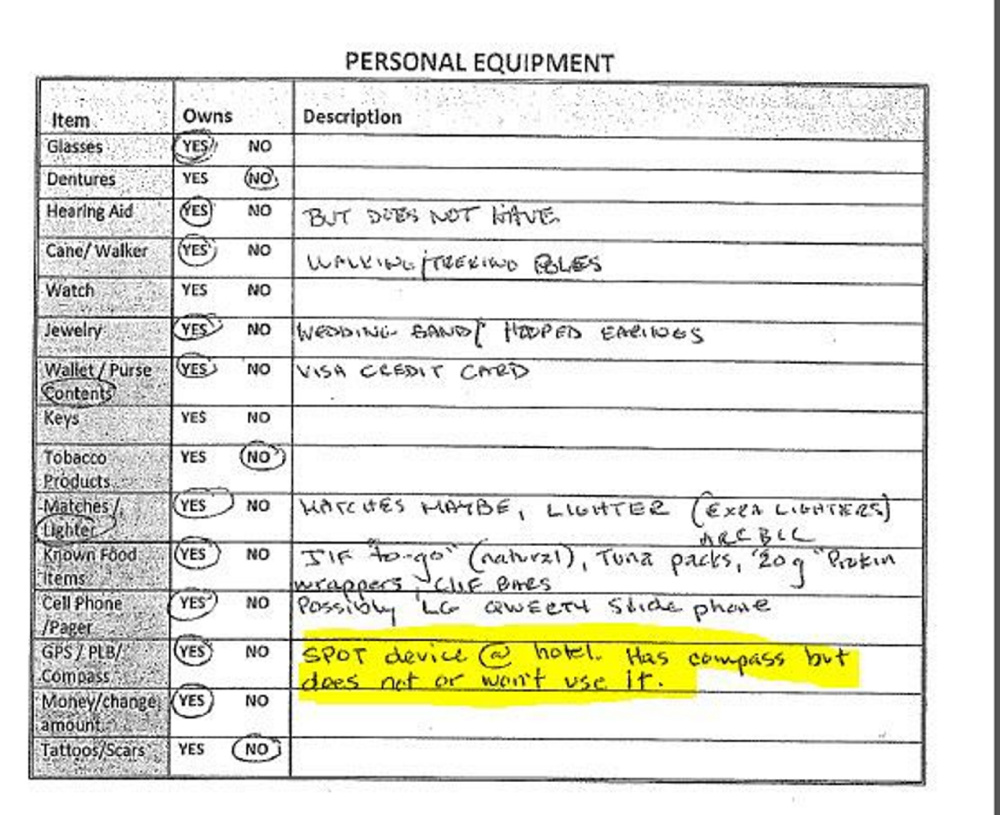 PERSONAL EQUIPMENT
Item Owns Description
Glasses YES NO
Dentures YES NO
Hearing Aid YES NO BUT DOES NOT HAVE
Cane/ Walker YES NO WALKING/TREKING POLES
Watch YES NO
Jewelry YES NO WEDDING BAND/ HOOPED EARINGS
Wallet / Purse YES NO VISA CREDIT CARD
Contents
Keys YES NO
Tobacco YES NO
Products
Matches / YES NO MATCHES MAYBE, LIGHTER (EXRA LIGHTERS)
Lighter ARE BLU
Known Food YES NO JIF "to-go" (natural), Tuna packs, "20g" Protein
Items wrappers, CLIF BARS
Cell Phone YES NO Possibly LG QWERTY Slide phone
/Pager
GPS / PLB/ YES NO SPOT device @ hotel. Has compass but
Compass does not or won't use it.
Money/change YES NO
amount
Tattoos/Scars YES NO